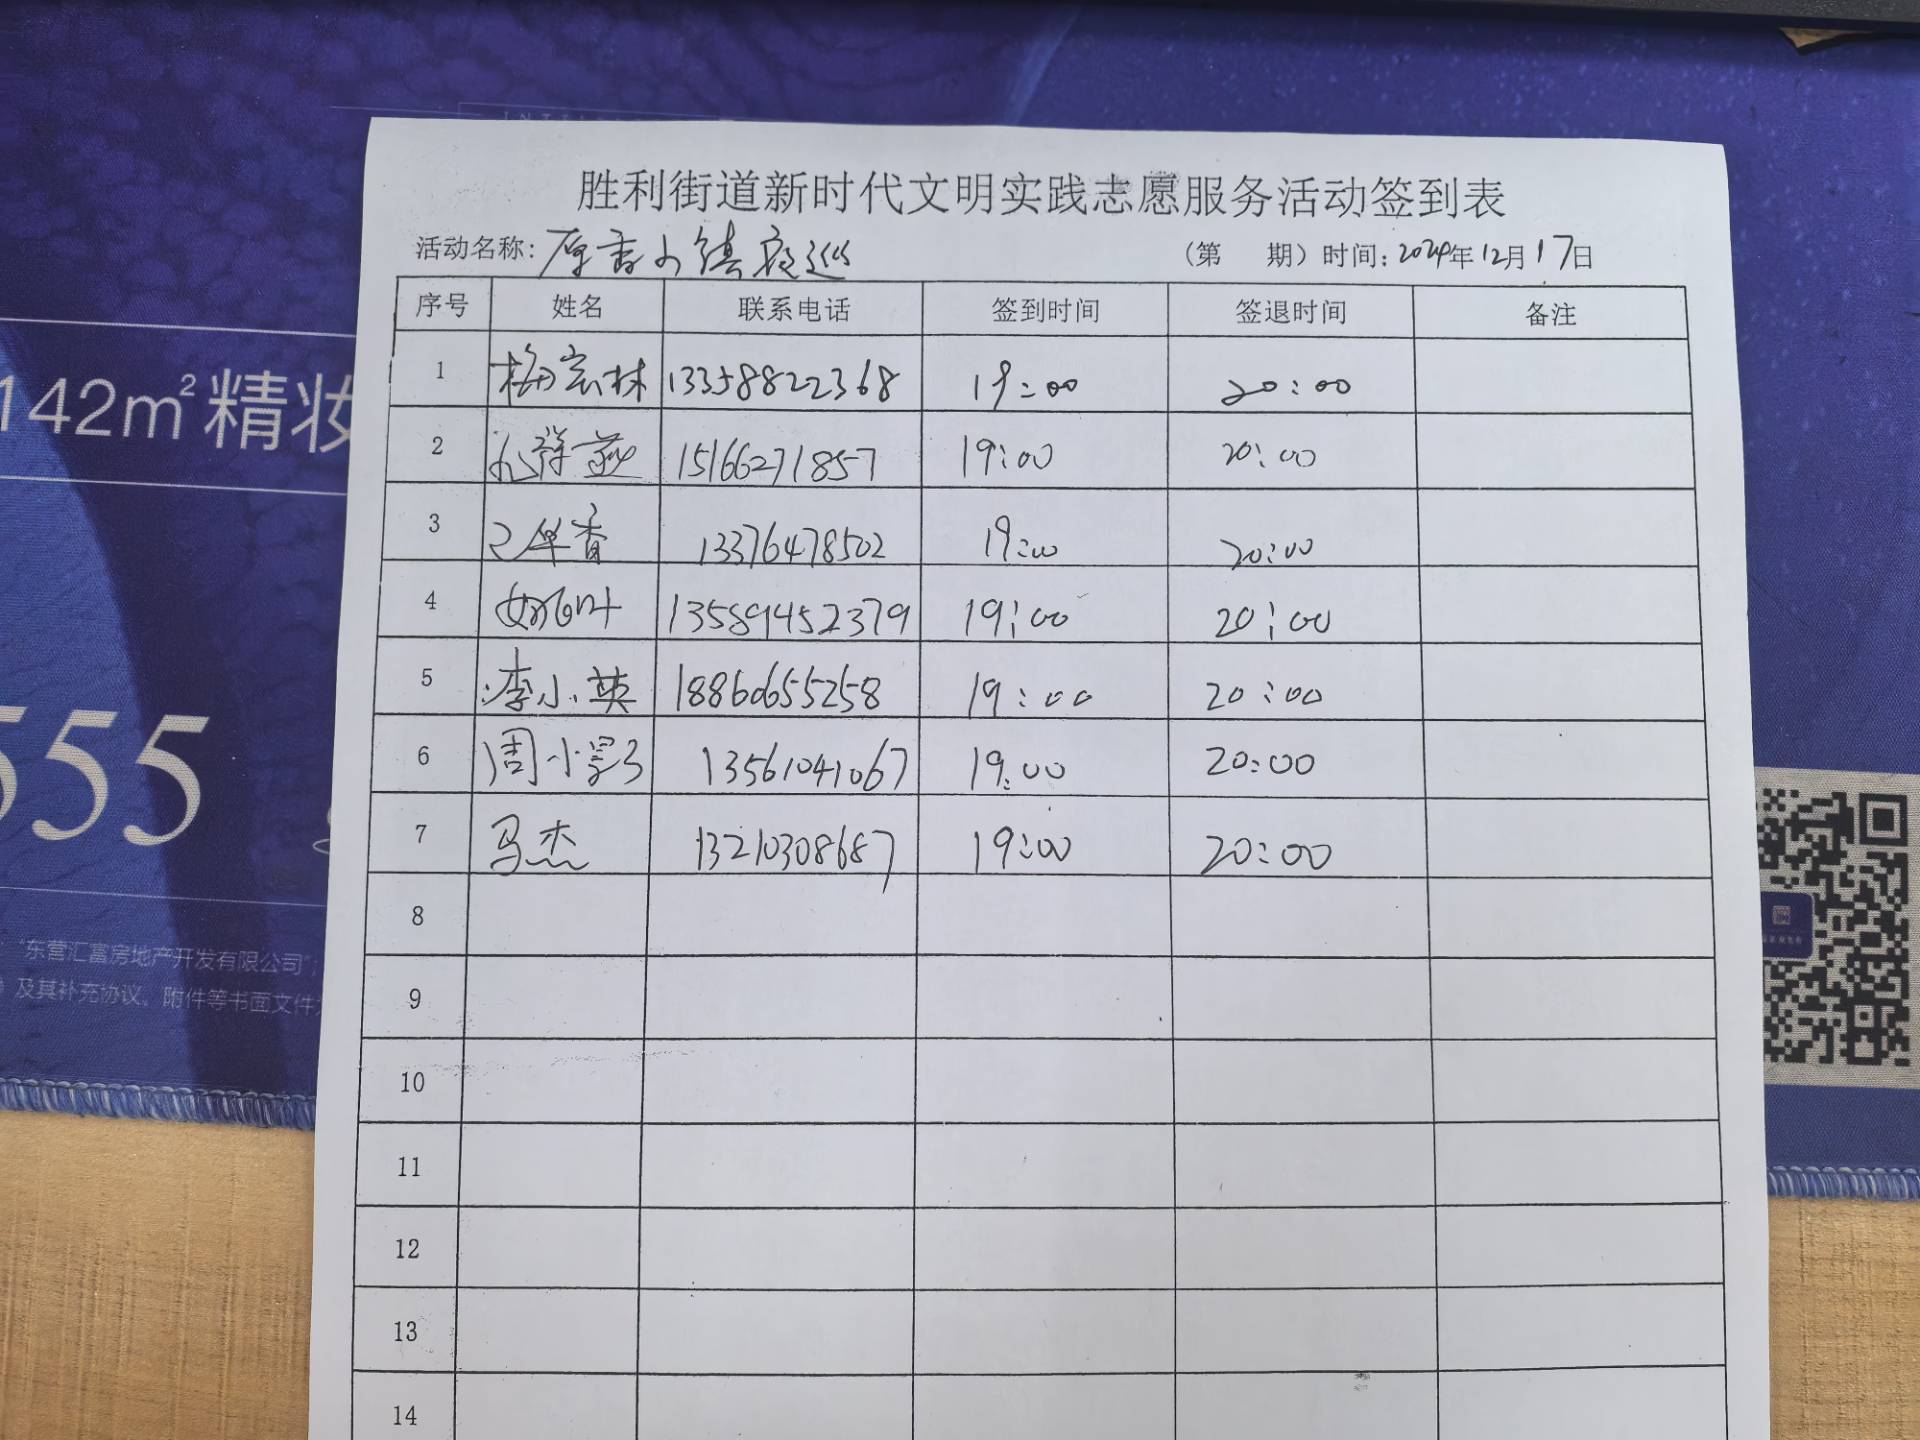 胜利街道新时代文明实践志愿服务活动签到表
活动名称：香小镇夜巡 （第 期）时间：2024年12月17日
序号 姓名 联系电话 签到时间 签退时间 备注
1 梅宏林 13358822368 19:00 20:00
2 15166271857 19:00 20:00
3 13376478502 19:00 20:00
4 13589452379 19:00 20:00
5 李小英 18860655258 19:00 20:00
6 周小 13561041067 19:00 20:00
7 马杰 13210308687 19:00 20:00
8
9
10
11
12
13
14
142m²精妆
555
“东营汇富房地产开发有限公司”
及其补充协议、附件等书面文件